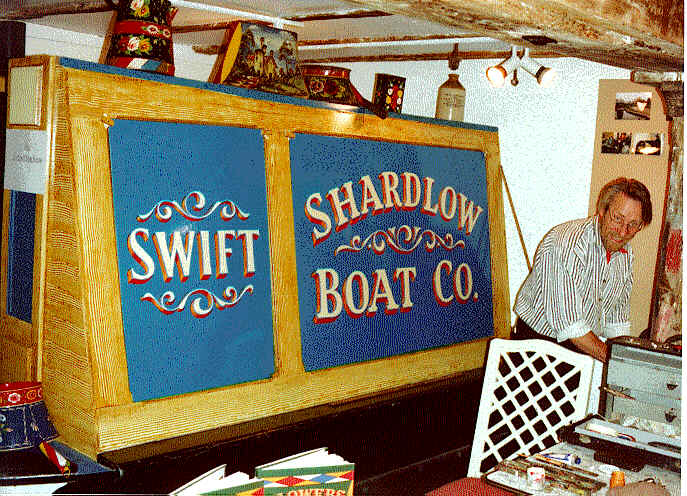 SWIFT
SHARDLOW
BOAT CO.
LOWERS